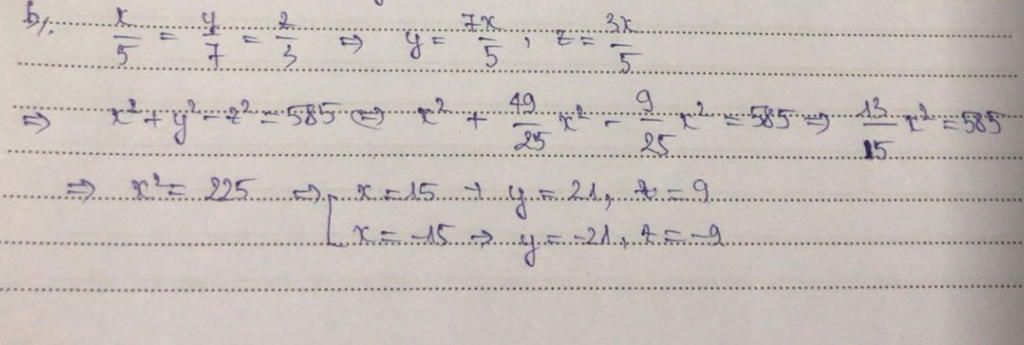 b/. x/5 = y/7 = z/3 ⇒ y = 7x/5, z = 3x/5
⇒ x² + y² - z² = 585 ⇔ x² + 49/25 x² - 9/25 x² = 585 ⇒ 13/15 x² = 585
⇒ x² = 225 ⇔ [ x = 15 → y = 21, z = 9
x = -15 → y = -21, z = -9